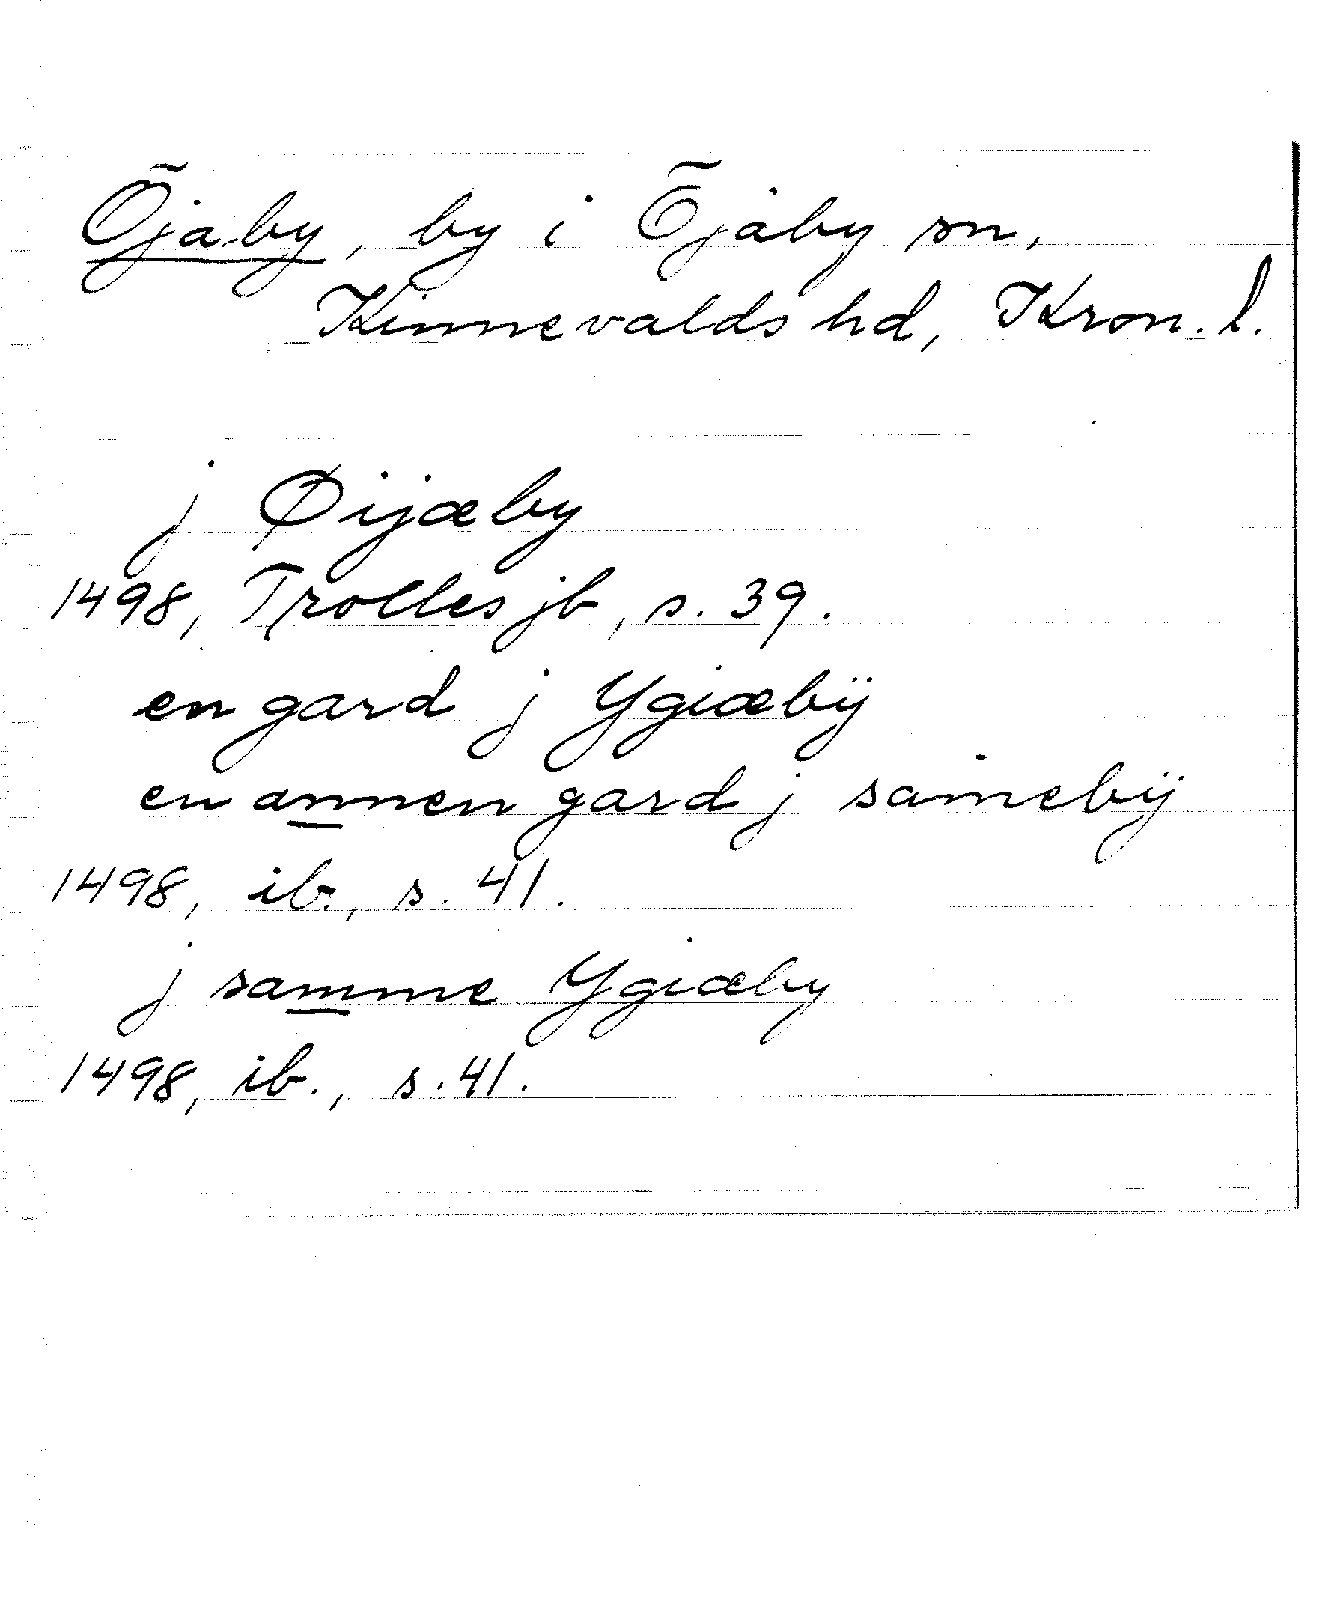 Öjaby, by i Öjaby sn,
Kinnevalds hd, Kron. l.
j Øijæby
1498, Trolles jb, s. 39.
en gard j Ygiæbÿ
en annen gard j samebÿ
1498, ib., s. 41.
j samme Ygiæby
1498, ib., s. 41.